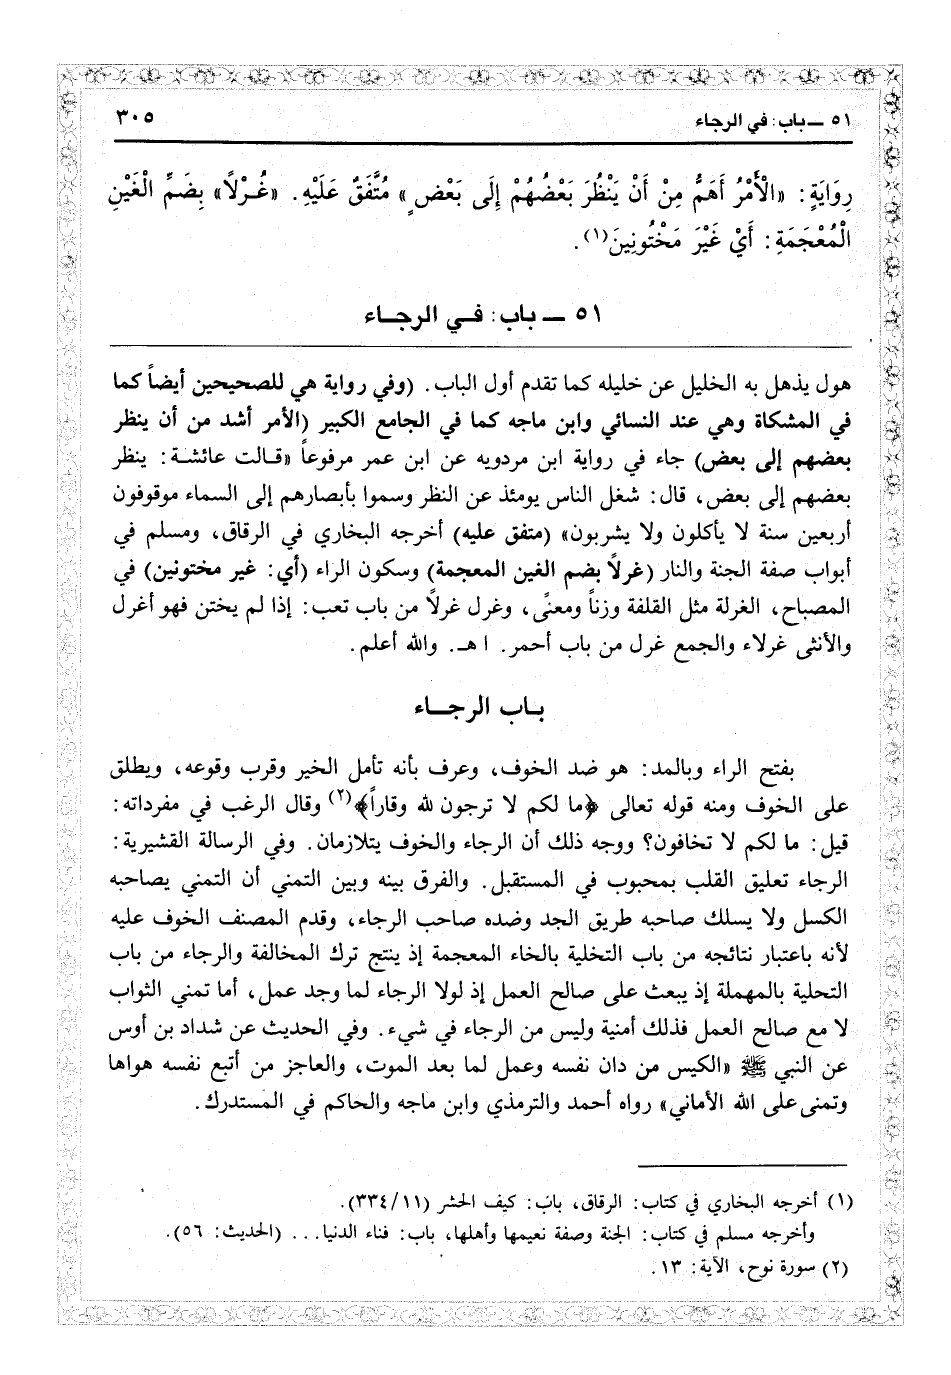 ٥١ ــ باب: في الرجاء
٣٠٥
رِوَايَةٍ: «الْأَمْرُ أَهَمُّ مِنْ أَنْ يَنْظُرَ بَعْضُهُمْ إِلَى بَعْضٍ» مُتَّفَقٌ عَلَيْهِ. «غُرْلًا» بِضَمِّ الْغَيْنِ
الْمُعْجَمَةِ: أَيْ غَيْرَ مَخْتُونِينَ(١).
٥١ ــ باب: في الرجاء
هول يذهل به الخليل عن خليله كما تقدم أول الباب. (وفي رواية هي للصحيحين أيضاً كما
في المشكاة وهي عند النسائي وابن ماجه كما في الجامع الكبير (الأمر أشد من أن ينظر
بعضهم إلى بعض) جاء في رواية ابن مردويه عن ابن عمر مرفوعاً «قالت عائشة: ينظر
بعضهم إلى بعض، قال: شغل الناس يومئذ عن النظر وسموا بأبصارهم إلى السماء موقوفون
أربعين سنة لا يأكلون ولا يشربون» (متفق عليه) أخرجه البخاري في الرقاق، ومسلم في
أبواب صفة الجنة والنار (غرلاً بضم الغين المعجمة) وسكون الراء (أي: غير مختونين) في
المصباح، الغرلة مثل القلفة وزناً ومعنًى، وغرل غرلاً من باب تعب: إذا لم يختن فهو أغرل
والأنثى غرلاء والجمع غرل من باب أحمر. ا هـ. والله أعلم.
باب الرجاء
بفتح الراء وبالمد: هو ضد الخوف، وعرف بأنه تأمل الخير وقرب وقوعه، ويطلق
على الخوف ومنه قوله تعالى ﴿ما لكم لا ترجون لله وقاراً﴾(٢) وقال الرغب في مفرداته:
قيل: ما لكم لا تخافون؟ ووجه ذلك أن الرجاء والخوف يتلازمان. وفي الرسالة القشيرية:
الرجاء تعليق القلب بمحبوب في المستقبل. والفرق بينه وبين التمني أن التمني يصاحبه
الكسل ولا يسلك صاحبه طريق الجد وضده صاحب الرجاء، وقدم المصنف الخوف عليه
لأنه باعتبار نتائجه من باب التخلية بالخاء المعجمة إذ ينتج ترك المخالفة والرجاء من باب
التحلية بالمهملة إذ يبعث على صالح العمل إذ لولا الرجاء لما وجد عمل، أما تمني الثواب
لا مع صالح العمل فذلك أمنية وليس من الرجاء في شيء. وفي الحديث عن شداد بن أوس
عن النبي ﷺ «الكيس من دان نفسه وعمل لما بعد الموت، والعاجز من أتبع نفسه هواها
وتمنى على الله الأماني» رواه أحمد والترمذي وابن ماجه والحاكم في المستدرك.
(١) أخرجه البخاري في كتاب: الرقاق، باب: كيف الحشر (٣٣٤/١١).
وأخرجه مسلم في كتاب: الجنة وصفة نعيمها وأهلها، باب: فناء الدنيا... (الحديث: ٥٦).
(٢) سورة نوح، الآية: ١٣.